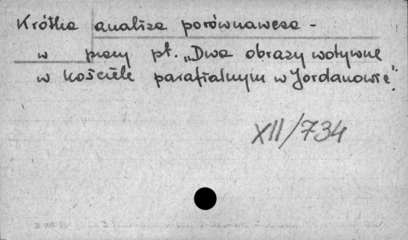 Krótka analiza porównawcza -
w pracy pt. „Dwa obrazy wotywne
w kościele parafialnym w Jordanowie".
XII/734